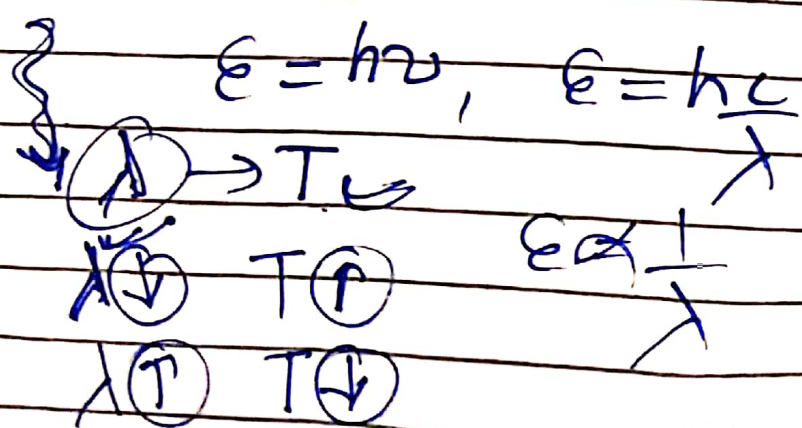 ε = hν, ε = hc/λ
λ → T
ε ∝ 1/λ
λ ↓ T ↑
λ ↑ T ↓